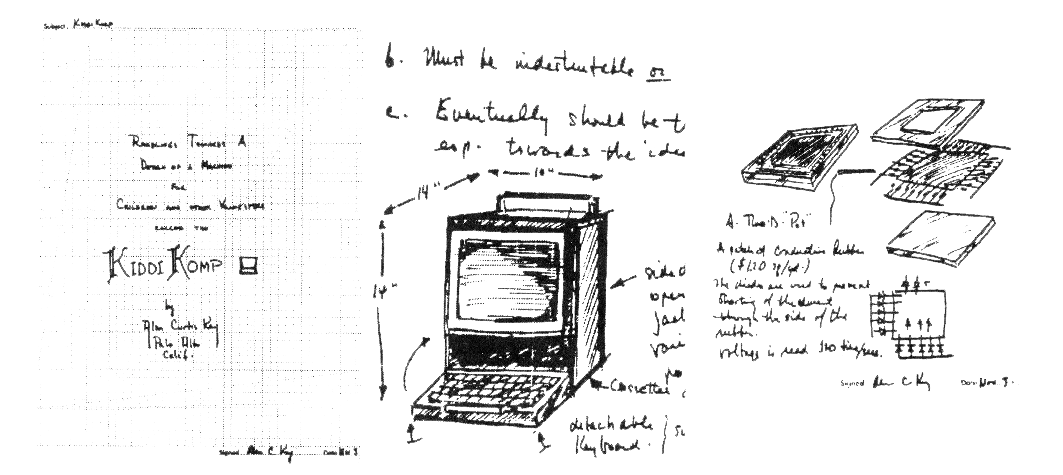 Subject: Kiddi Komp
Ramblings Towards A
Design of a Machine
for
Children and other Youngsters
called the
KIDDI KOMP
by
Alan Curtis Kay
Palo Alto
Calif.
Signed Alan C. Kay Date Nov 3
b. Must be indestructable or
c. Eventually should be t
esp. towards the idea
14"
10"
14"
sided
open
Cassettes
detachable
Keyboard.
A Two-D "Pot"
A patch of Conductive Rubber
The diodes are used to prevent
shorting of the current
through the side of the
rubber.
Voltage is read
Signed Alan C Kay Date Nov 3.